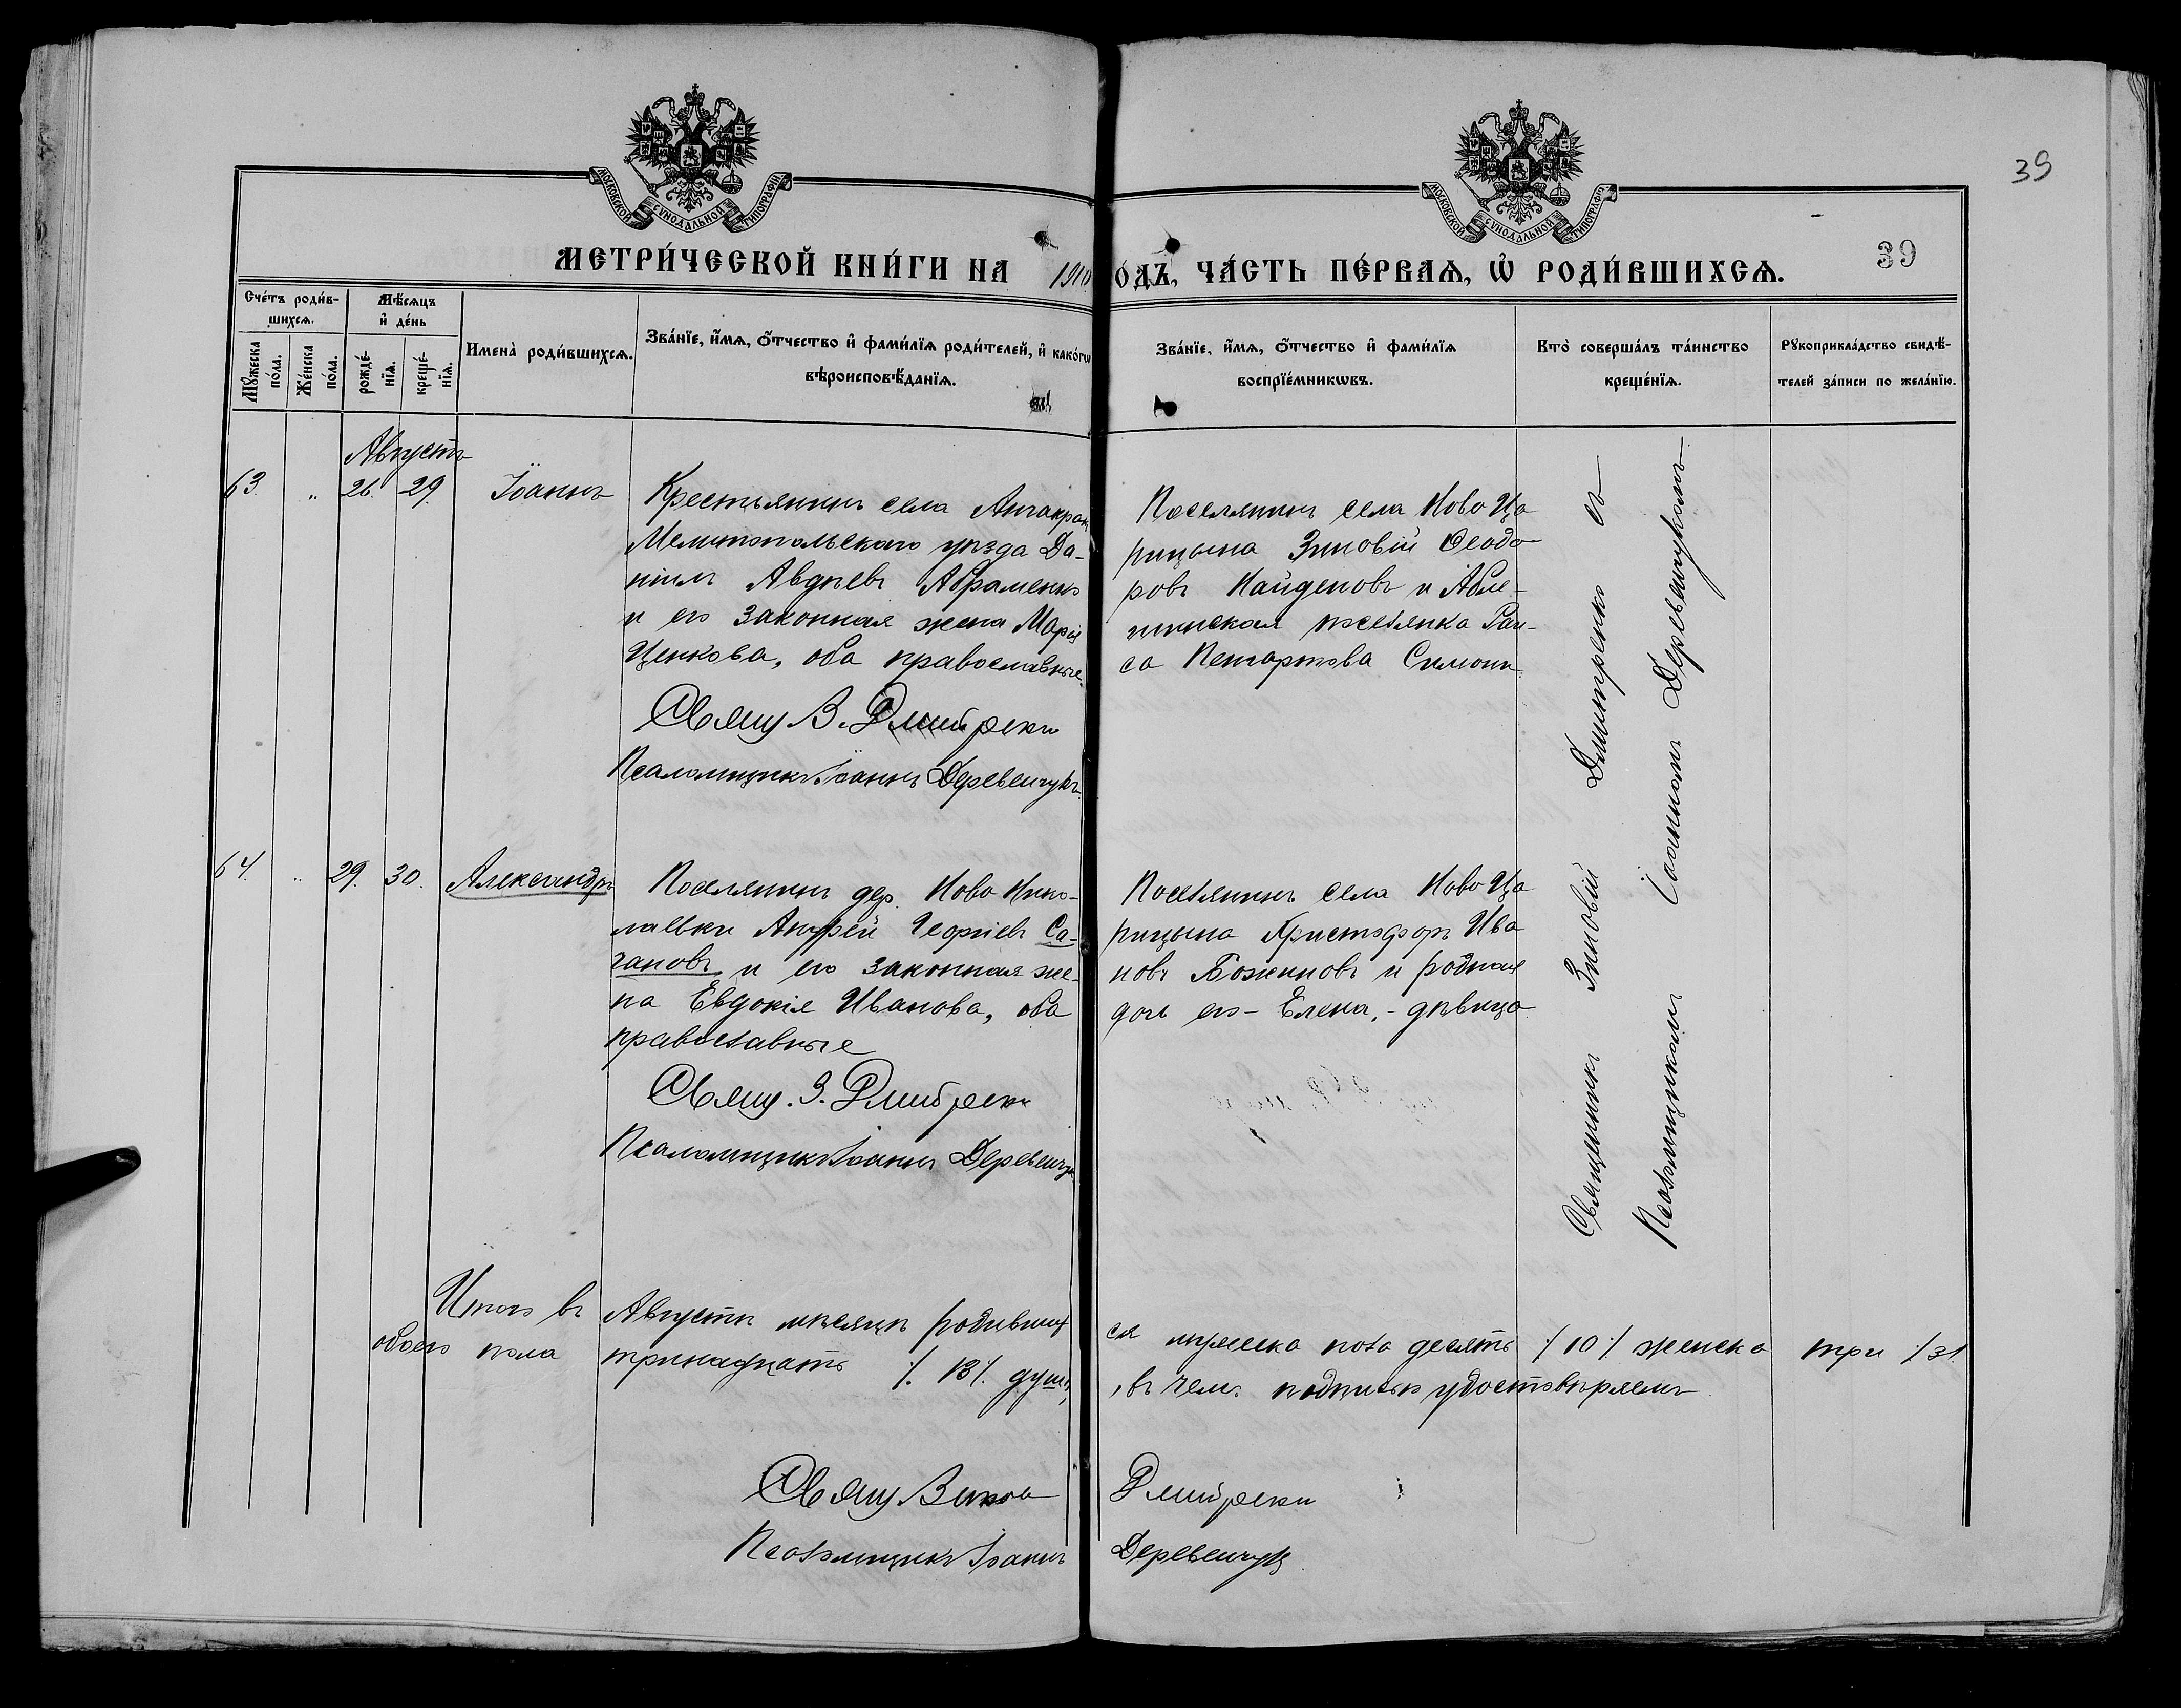 39
МОСКОВСКОЙ СУНОДАЛЬНОЙ ТИПОГРАФІИ
МОСКОВСКОЙ СУНОДАЛЬНОЙ ТИПОГРАФІИ
МЕТРИ́ЧЕСКОЙ КНИ́ГИ НА 1910 ОДЪ, ЧА́СТЬ ПЕ́РВАѦ, Ѡ РОДИ́ВШИХСѦ.
39
Сче́тъ роди́в-
шихсѧ.
Мꙋжеска
по́ла.
Же́нска
по́ла.
Мѣ́сѧцъ
и҆ де́нь
рожде́-
нїѧ.
креще́-
нїѧ.
Имена̀ роди́вшихсѧ.
Зва́нїе, и҆́мѧ, о҆́тчество и҆ фами́лїѧ роди́телей, и҆ како́гѡ
вѣроисповѣ́данїѧ.
Зва́нїе, и҆́мѧ, о҆́тчество и҆ фами́лїѧ
воспрїе́мникѡвъ.
Кто̀ соверша́лъ та́инство
креще́нїѧ.
Рꙋкоприкла́дство свидѣ́-
телей за́писи по жела́нїю.
Августъ
63. „ 26. 29. Іоаннъ
Крестьянинъ села
Мелитопольскаго уѣзда Да-
ніилъ Авдѣевъ Абраменко
и его законная жена Марія
Ценкова, оба православные.
Свящ З. Дмитренко
Псаломщикъ Іоаннъ Деревенчукъ
Поселянинъ села Ново Ца
рицына Зиновій Ѳеодо-
ровъ Найденовъ и
поселянка Раи-
са Симони
64. „ 29. 30. Александръ
Поселянинъ дер. Ново Нико-
лаевки Андрей Георгіевъ Са-
гановъ и его законная же-
на Евдокія Иванова, оба
православные
Свящ. З. Дмитренко
Псаломщикъ Іоаннъ Деревенчу
Поселянинъ села Ново Ца
рицына Христофоръ Ива
новъ Божиновъ и родная
дочь его - Елена, - дѣвица
Священникъ Зиновій Дмитренко съ
Псаломщикомъ Іоанномъ Деревенчукомъ
Итого въ Августѣ мѣсяцѣ родивших ся мужеска пола десять /10/ женска три /3/.
обоего пола тринадцать /. 13 /. душъ, въ чемъ подписью удостовѣряемъ
Свящ Зинов Дмитренко
Псаломщикъ Іоаннъ Деревенчукъ